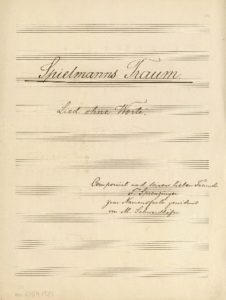 Spielmanns Traum.
Lied ohne Worte.
Componirt und seinem lieben Freunde
zum Namensfeste gewidmet
von M.